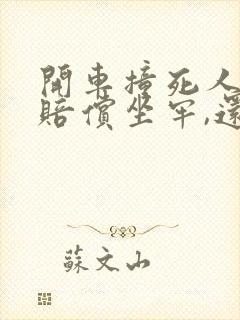 開車撞死人
賠償坐牢,還
蘇文山